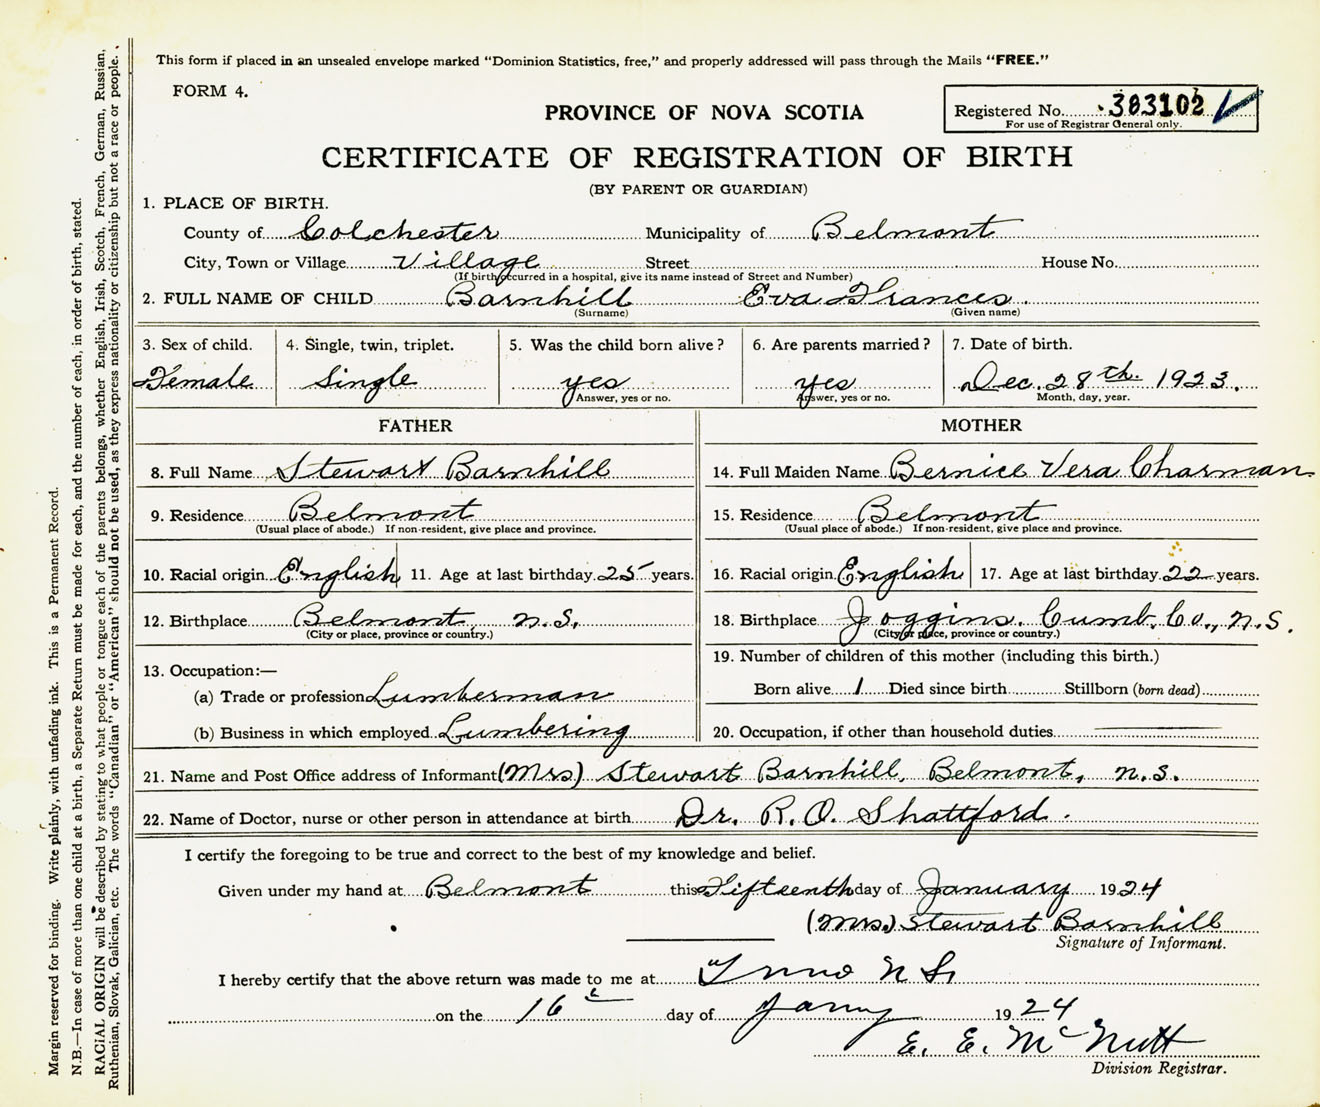 This form if placed in an unsealed envelope marked "Dominion Statistics, free," and properly addressed will pass through the Mails "FREE."
FORM 4.
Registered No. 383102
For use of Registrar General only.
PROVINCE OF NOVA SCOTIA
CERTIFICATE OF REGISTRATION OF BIRTH
(BY PARENT OR GUARDIAN)
1. PLACE OF BIRTH.
County of Colchester Municipality of Belmont
City, Town or Village Village Street House No.
(If birth occurred in a hospital, give its name instead of Street and Number)
2. FULL NAME OF CHILD Barnhill Eva Frances.
(Surname) (Given name)
3. Sex of child. 4. Single, twin, triplet. 5. Was the child born alive? 6. Are parents married? 7. Date of birth.
Female Single yes yes Dec. 28th. 1923.
Answer, yes or no. Answer, yes or no. Month, day, year.
FATHER MOTHER
8. Full Name Stewart Barnhill 14. Full Maiden Name Bernice Vera Charman
9. Residence Belmont 15. Residence Belmont
(Usual place of abode.) If non-resident, give place and province. (Usual place of abode.) If non-resident, give place and province.
10. Racial origin English 11. Age at last birthday 25 years. 16. Racial origin English 17. Age at last birthday 22 years.
12. Birthplace Belmont, N.S. 18. Birthplace Joggins. Cumb. Co., N.S.
(City or place, province or country.) (City or place, province or country.)
13. Occupation:— 19. Number of children of this mother (including this birth.)
(a) Trade or profession Lumberman Born alive 1 Died since birth Stillborn (born dead)
(b) Business in which employed Lumbering 20. Occupation, if other than household duties
21. Name and Post Office address of Informant (Mrs) Stewart Barnhill, Belmont, N.S.
22. Name of Doctor, nurse or other person in attendance at birth Dr. R. O. Shattford.
I certify the foregoing to be true and correct to the best of my knowledge and belief.
Given under my hand at Belmont this Fifteenth day of January 1924
(Mrs.) Stewart Barnhill
Signature of Informant.
I hereby certify that the above return was made to me at Truro N S
on the 16 day of Jany 1924
E. E. McNutt
Division Registrar.
Margin reserved for binding. Write plainly, with unfading ink. This is a Permanent Record.
N.B.—In case of more than one child at a birth, a Separate Return must be made for each, and the number of each, in order of birth, stated.
RACIAL ORIGIN will be described by stating to what people or tongue each of the parents belongs, whether English, Irish, Scotch, French, German, Russian,
Ruthenian, Slovak, Galician, etc. The words "Canadian" or "American" should not be used, as they express nationality or citizenship but not a race or people.